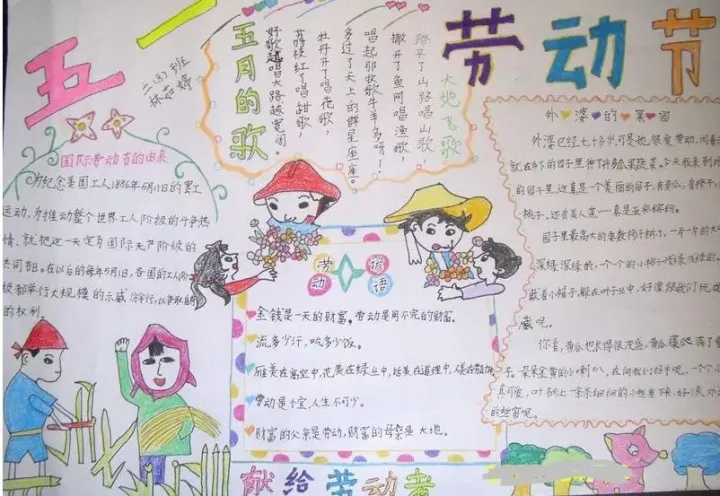 五一
劳动节
二(3)班
林茹婷
五月的歌
大地飞歌
踏平了山路唱山歌，
撒开了鱼网唱渔歌，
唱起那牧歌牛羊多呀！
多过了天上的群星座座。
牡丹开了唱花歌，
荔枝红了唱甜歌，
好歌越唱大路越宽阔。
国际劳动节的由来
为纪念美国工人1886年5月1日的罢工
运动，为推动整个世界工人阶级的斗争热
情，就把这一天定为国际无产阶级的
共同节日。在以后的每年5月1日，各国的工人阶
级都举行大规模的示威游行，以争取自
的权利。
劳动谚语
金钱是一天的财富，劳动是用不完的财富。
流多少汗，吃多少饭。
雁美在高空中，花美在绿丛中，话美在道理中，
劳动是个宝，人生不可少。
财富的父亲是劳动，财富的母亲是大地。
献给劳动者
外婆的果园
外婆已经七十多岁，可是她很爱劳动，
就在乡下的园子里种了许多瓜果蔬菜。今天我来到
的园子里，这真是一个美丽的园子，有
桃子，还有美人蕉……真是五彩缤纷。
园子里最高大的要数柿子树了，一片一片的大
深绿深绿的，一个个的小柿子浅绿浅绿的。
戴着小帽子，躲在叶子丛中，好像跟我们玩
藏呢。
你看，黄瓜也长得很茂盛，黄瓜藤爬满了
子。朵朵金黄的小喇叭，在向我们招手呢。一个个小
真可爱，叶柄上一条条细细的小丝垂下来，好像
的丝窗呢。